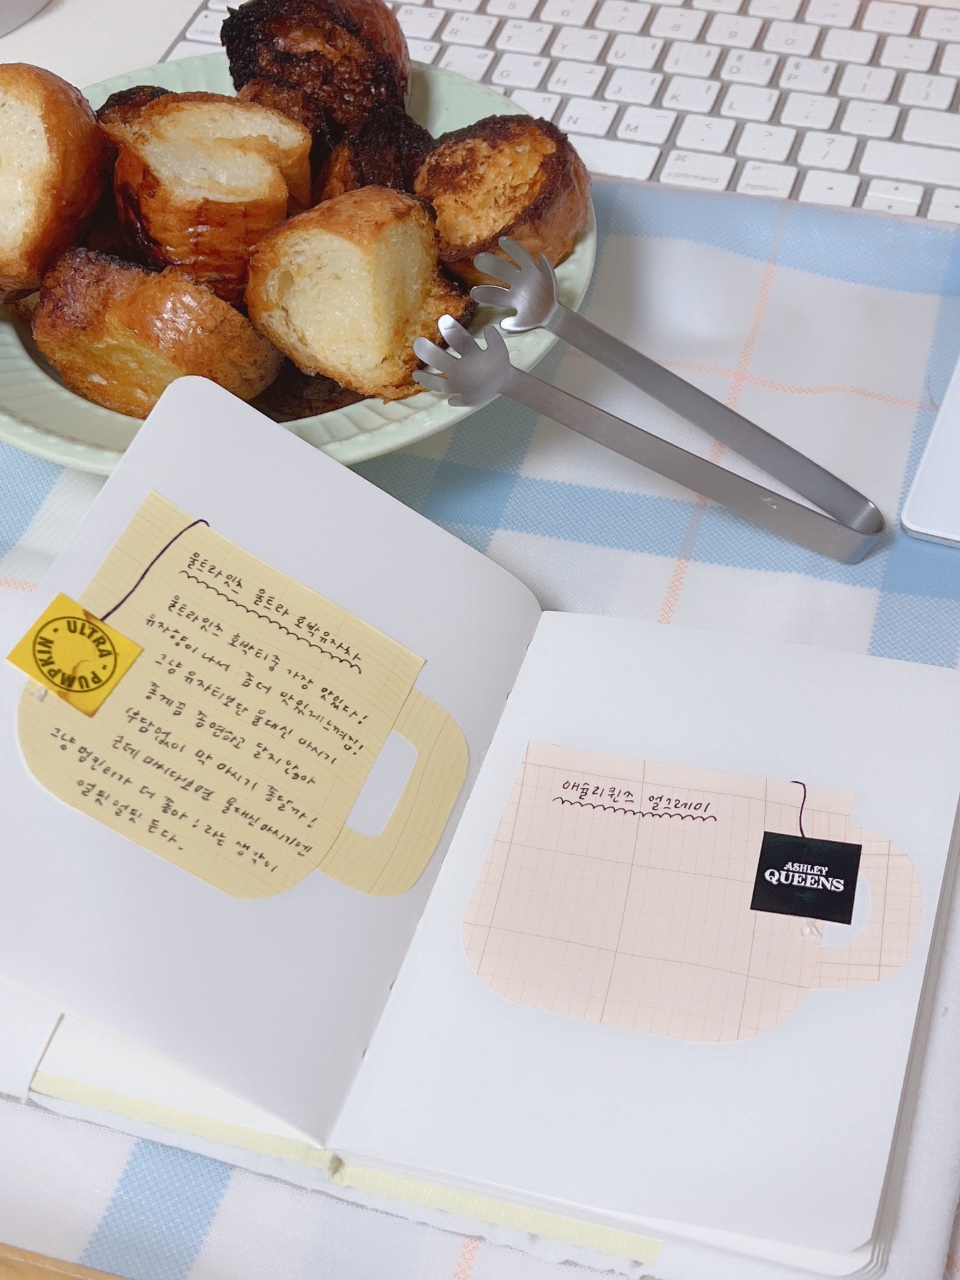 울트라잇츠 울트라 호박유자차
울트라잇츠 호박티중 가장 맛있다!
유자향이 나서 좀 더 맛있게느껴짐!
그냥 유자티보단 물대신 마시기
좋게끔 좀 연하고 달지않아
부담없이 막 마시기 좋달까!
근데 마시다보면 물대신마시기엔
그냥 펌킨티가 더 좋아! 라는 생각이
얼핏 얼핏 든다.
ULTRA · PUMPKIN ·
애슐리퀸즈 얼그레이
ASHLEY
QUEENS
command
option